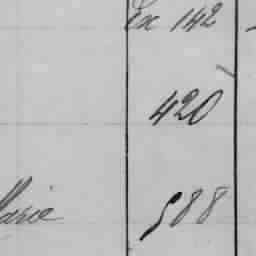 Ex 142
420
Marie 588